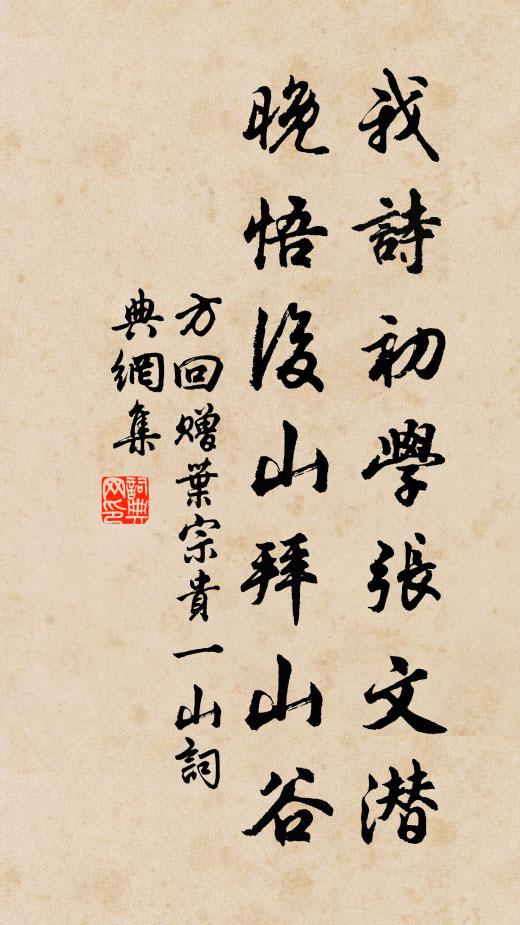 我詩初學張文潜
晚悟後山拜山谷
方回赠葉宗貴一山詞
典網集
詞典網印